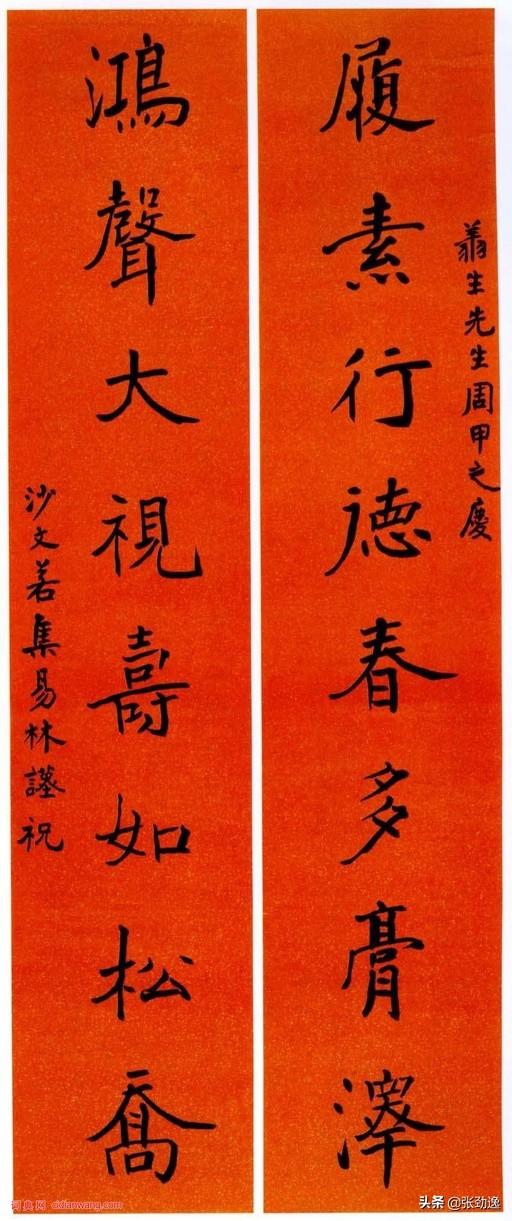 生先生周甲之慶
履素行德春多膏澤
鴻聲大視壽如松喬
沙文若集易林謹祝
词典网 cidianwang.com
头条 @张劲逸